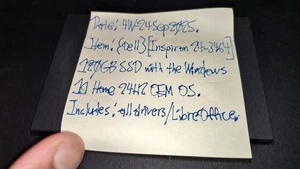 Date: 4W24Sep2025.
Item: {Dell}[Inspiron 24-3464]
120GB SSD with the Windows
11 Home 24H2 OEM OS.
Includes: all drivers/LibreOffice.